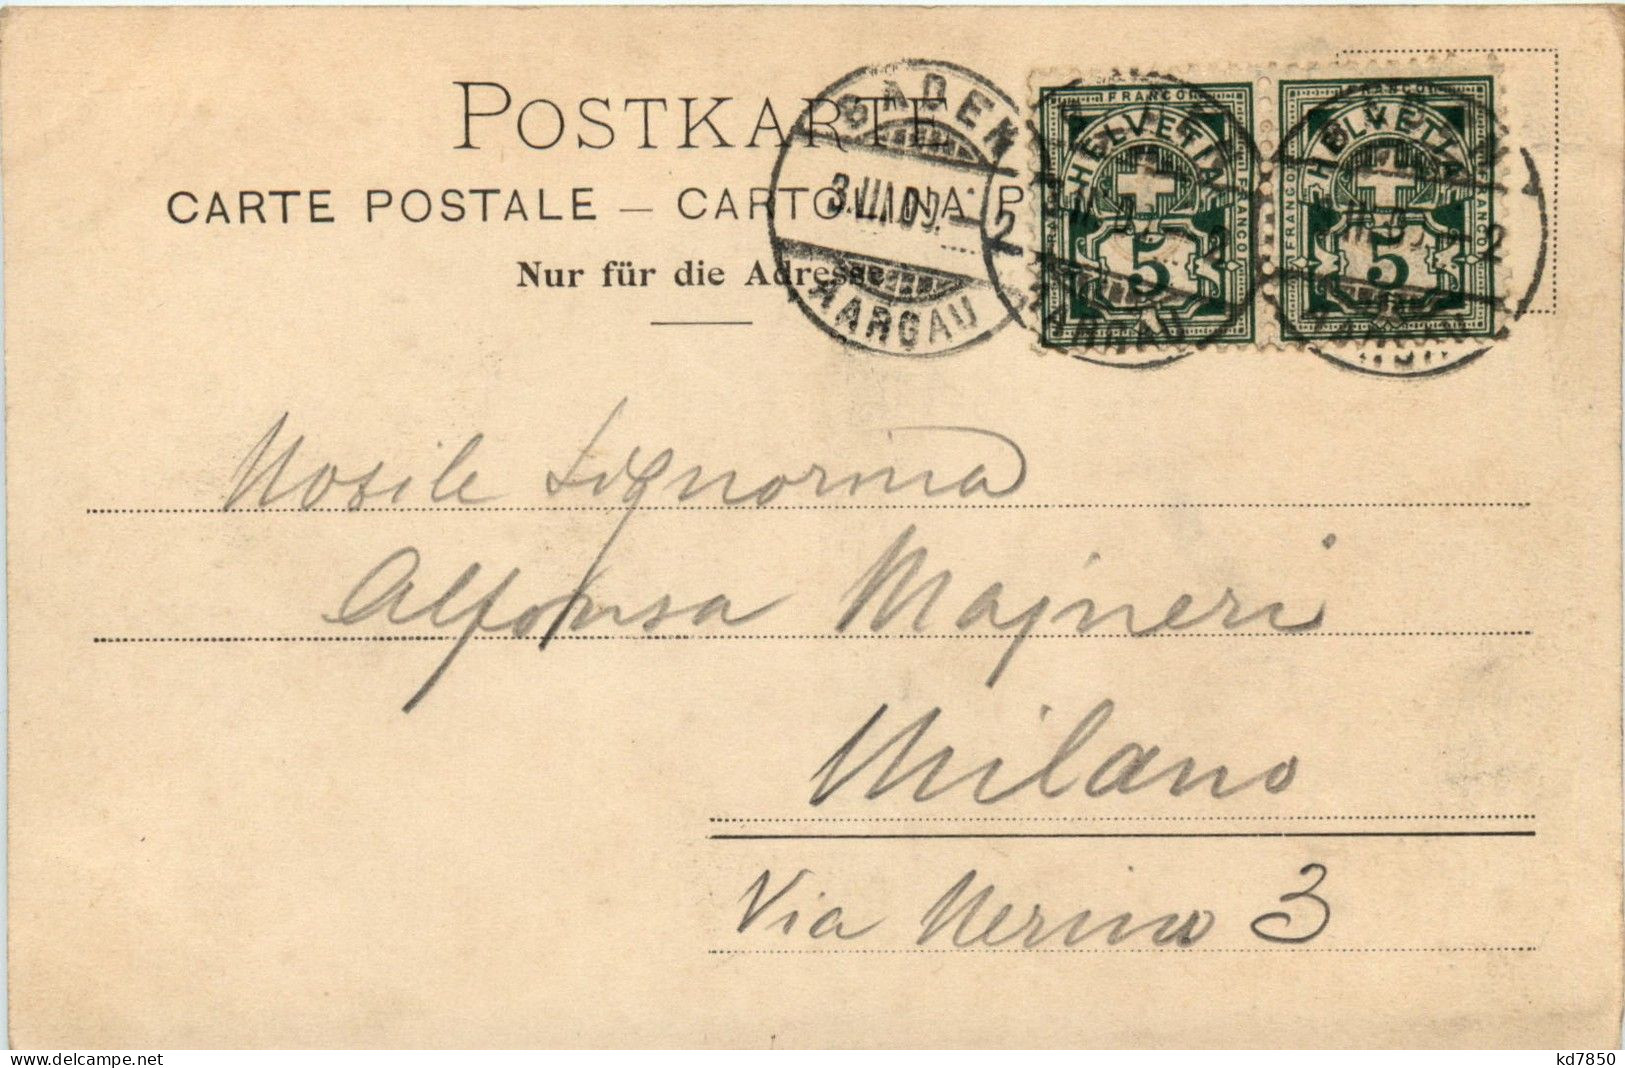 POSTKARTE
CARTE POSTALE — CARTOLINA P
Nur für die Adresse
BADEN
AARGAU
2
FRANCO
HELVETIA
FRANCO
5
FRANCO
2
AARGAU
FRANCO
HELVETIA
FRANCO
5
FRANCO
2
Nobile Signorina
Alfonsa Majneri
Milano
Via Nerino 3
www.delcampe.net
kd7850